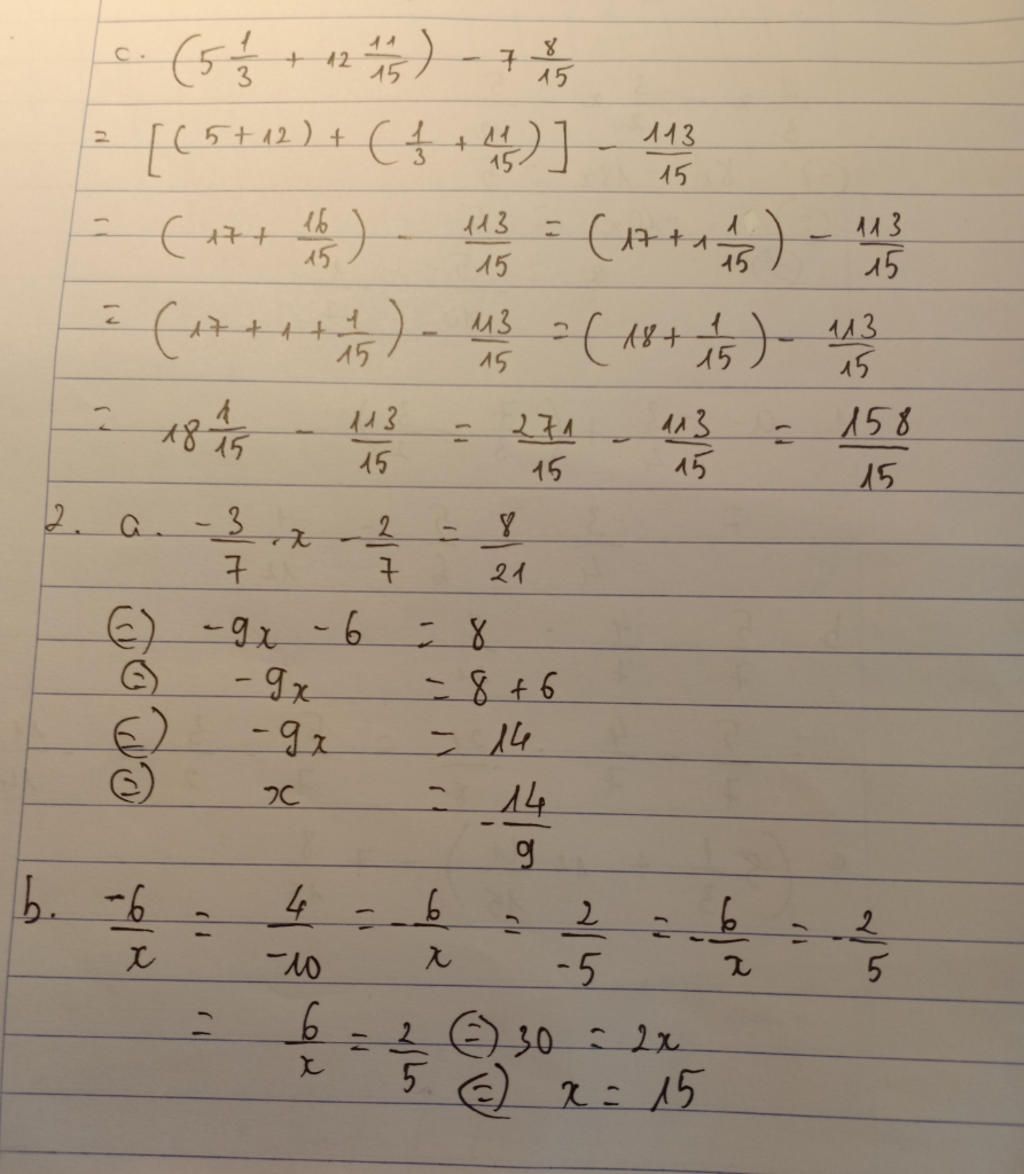 c. (5 1/3 + 12 11/15) - 7 8/15
= [(5 + 12) + (1/3 + 11/15)] - 113/15
= (17 + 16/15) - 113/15 = (17 + 1 1/15) - 113/15
= (17 + 1 + 1/15) - 113/15 = (18 + 1/15) - 113/15
= 18 1/15 - 113/15 = 271/15 - 113/15 = 158/15
2. a. -3/7 . x - 2/7 = 8/21
⇔ -9x - 6 = 8
⇔ -9x = 8 + 6
⇔ -9x = 14
⇔ x = -14/9
b. -6/x = 4/-10 = -6/x = 2/-5 = -6/x = -2/5
= 6/x = 2/5 ⇔ 30 = 2x
⇔ x = 15